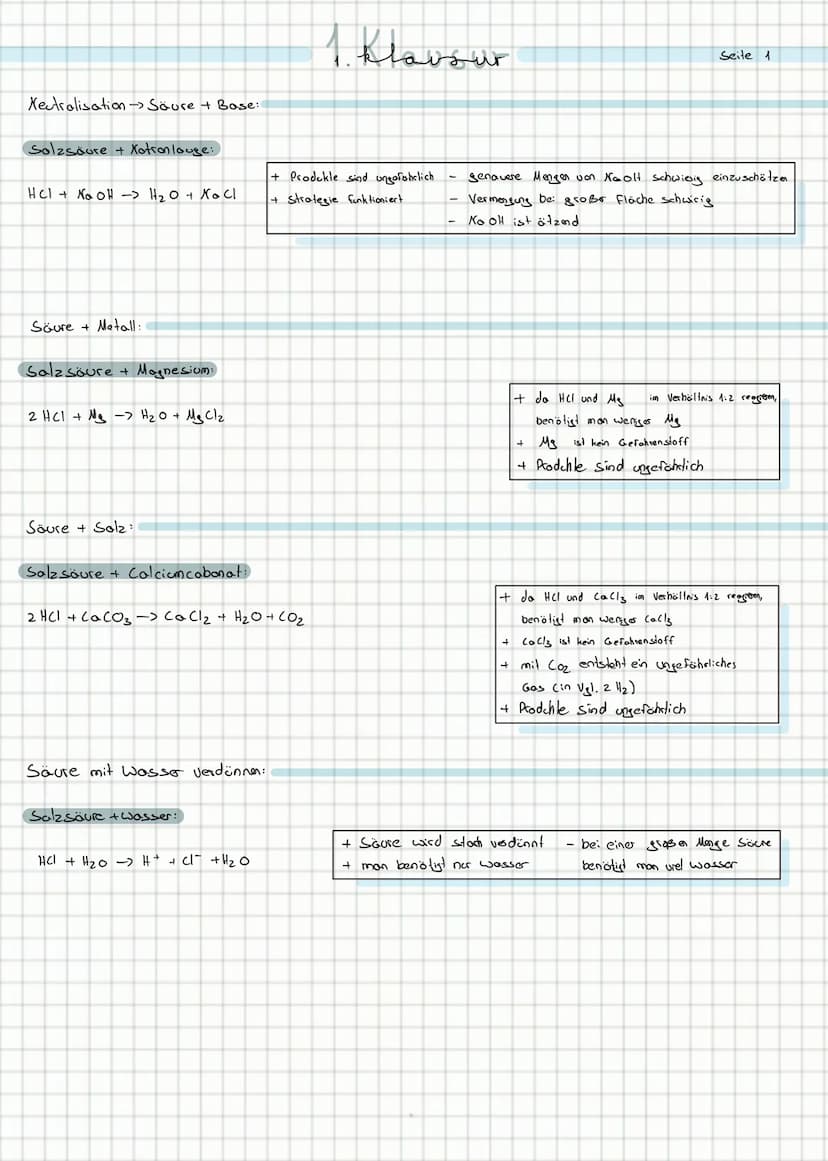 1. Klausur
1. Klausur
Seite 1
Neutralisation -> Säure + Base:
Salzsäure + Natronlauge:
HCl + NaOH -> H₂O + NaCl
+ Produkte sind ungefährlich - genauere Mengen von NaOH schwierig einzuschätzen
+ Strategie funktioniert - Vermengung bei großer Fläche schwirig
- NaOH ist ätzend
Säure + Metall:
Salzsäure + Magnesium:
2 HCl + Mg -> H₂O + MgCl₂
+ da HCl und Mg im Verhältnis 1:2 reagieren,
benötigt man weniger Mg
+ Mg ist kein Gefahrenstoff
+ Produkte sind ungefährlich
Säure + Salz:
Salzsäure + Calciumcabonat:
2 HCl + CaCO₃ -> CaCl₂ + H₂O + CO₂
+ da HCl und CaCl₃ im Verhältnis 1:2 reagieren,
benötigt man weniger CaCl₃
+ CaCl₃ ist kein Gefahrenstoff
+ mit CO₂ entsteht ein ungefährliches
Gas (in Vgl. 2 H₂)
+ Produkte sind ungefährlich
Säure mit Wasser verdünnen:
Salzsäure + Wasser:
HCl + H₂O -> H⁺ + Cl⁻ + H₂O
+ Säure wird stark verdünnt - bei einer großen Menge Säure
+ man benötigt nur Wasser benötigt man viel Wasser